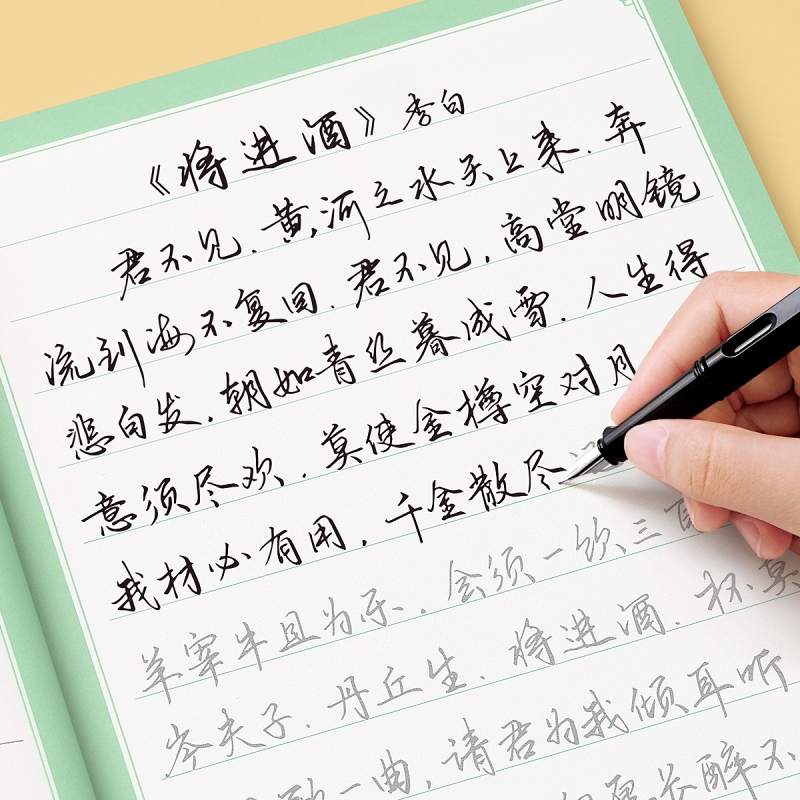 《将进酒》李白
君不见.黄河之水天上来.奔
流到海不复回.君不见,高堂明镜
悲白发,朝如青丝暮成雪.人生得
意须尽欢.莫使金樽空对月
我材必有用,千金散尽
会须一饮三百
羊宰牛且为乐.
岑夫子.丹丘生.将进酒.杯莫
一曲,请君为我倾耳听
醉不